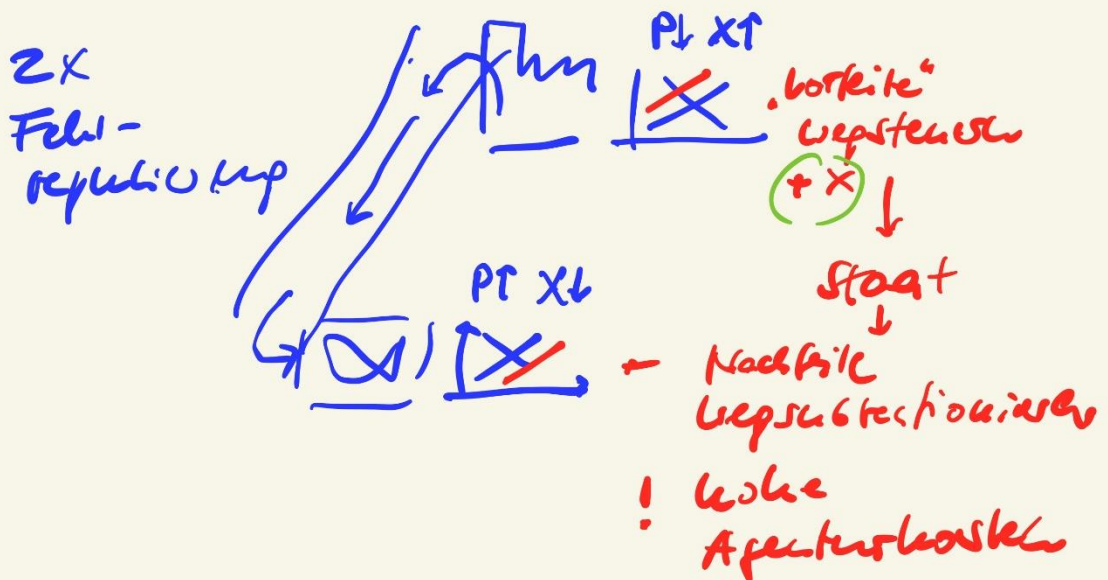 2x
Fehl-
regulierung
P↓ X↑
"Vorteile"
wegsteuern
+ X
Staat
P↑ X↓
- Nachteile
wegsubventionieren
! hohe
Agenturkosten